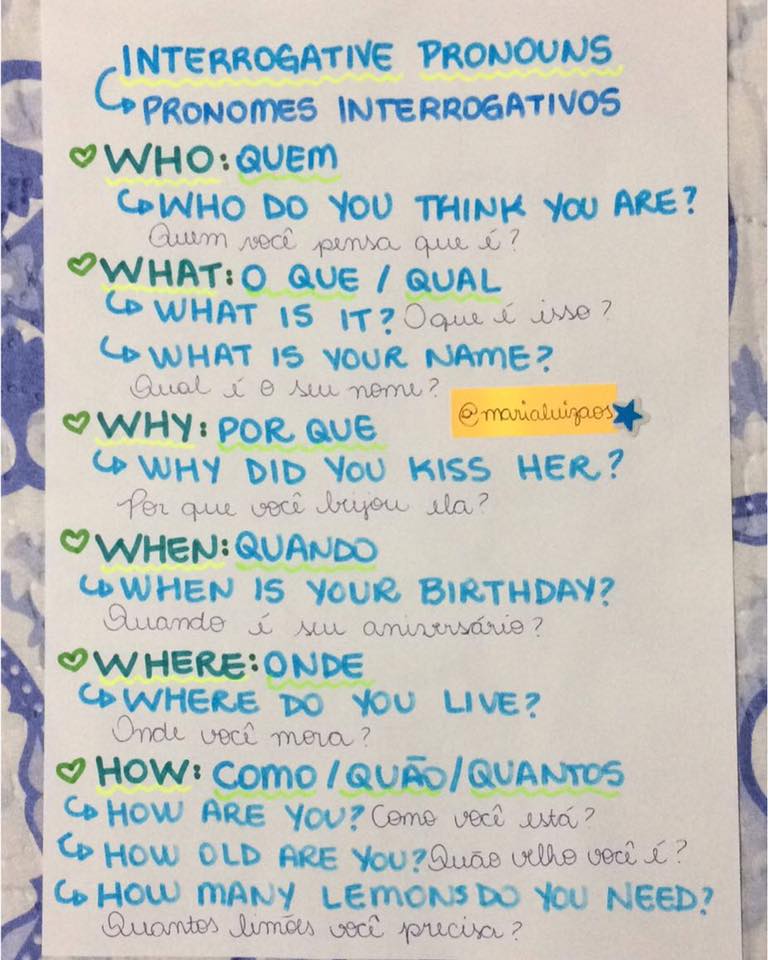 INTERROGATIVE PRONOUNS
PRONOMES INTERROGATIVOS
WHO: QUEM
WHO DO YOU THINK YOU ARE?
Quem você pensa que é?
WHAT: O QUE / QUAL
WHAT IS IT? O que é isso?
WHAT IS YOUR NAME?
Qual é o seu nome?
@marialuizaos
WHY: POR QUE
WHY DID YOU KISS HER?
Por que você beijou ela?
WHEN: QUANDO
WHEN IS YOUR BIRTHDAY?
Quando é seu aniversário?
WHERE: ONDE
WHERE DO YOU LIVE?
Onde você mora?
HOW: COMO / QUÃO / QUANTOS
HOW ARE YOU? Como você está?
HOW OLD ARE YOU? Quão velho você é?
HOW MANY LEMONS DO YOU NEED?
Quantos limões você precisa?